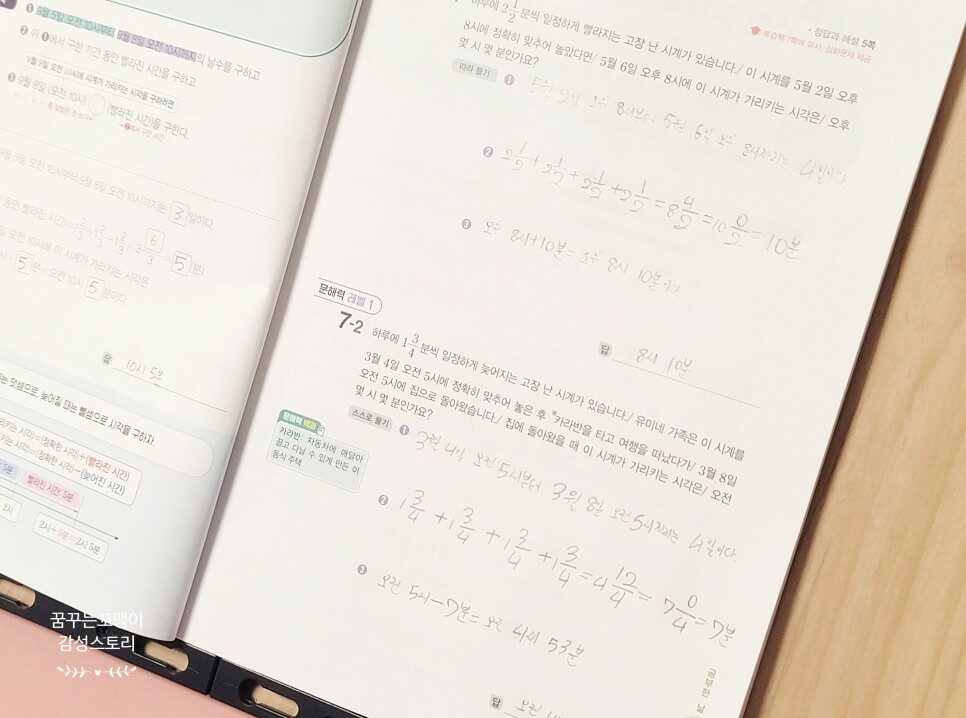 ❶ 9월 5일 오전 10시부터 9월 8일 오전 10시까지의 날수를 구하고
❷ 위 ❶에서 구한 기간 동안 빨라진 시간을 구하고
9월 8일 오전 10시에 시계가 가리키는 시각을 구하려면
❸ 9월 8일 (오전 10시) (빨라진 시간)을 구한다.
❷에서 구한 시간
9월 5일 오전 10시부터 9월 8일 오전 10시까지는 3 일이다.
동안 빨라진 시간)=1 2/3+1 2/3+1 2/3=3 6/3=5(분)
일 오전 10시에 이 시계가 가리키는 시각은
5 분=오전 10시 5 분이다.
답 10시 5분
는 덧셈으로, 늦어질 때는 뺄셈으로 시각을 구하자.
리키는 시각)=(정확한 시각)+(빨라진 시간)
키는 시각)=(정확한 시각)-(늦어진 시간)
5분
빨라진 시간 5분
2시
2시+5분=2시 5분
정답과 해설 5쪽
복습책 7쪽에 유사, 심화문제 제공
하루에 2 1/2분씩 일정하게 빨라지는 고장 난 시계가 있습니다./ 이 시계를 5월 2일 오후
8시에 정확히 맞추어 놓았다면/ 5월 6일 오후 8시에 이 시계가 가리키는 시각은/ 오후
몇 시 몇 분인가요?
따라 풀기
❶ 5월 2일 오후 8시부터 5월 6일 오후 8시까지는 4일이다.
❷ 2 1/2+2 1/2+2 1/2+2 1/2=8 4/2=10 0/2=10분
❸ 오후 8시+10분=오후 8시 10분이다.
답 8시 10분
문해력 레벨 1
7-2
하루에 1 3/4분씩 일정하게 늦어지는 고장 난 시계가 있습니다./ 유미네 가족은 이 시계를
3월 4일 오전 5시에 정확히 맞추어 놓은 후 카라반을 타고 여행을 떠났다가/ 3월 8일
오전 5시에 집으로 돌아왔습니다./ 집에 돌아왔을 때 이 시계가 가리키는 시각은/ 오전
몇 시 몇 분인가요?
문해력 백과
카라반: 자동차에 매달아
끌고 다닐 수 있게 만든 이
동식 주택
스스로 풀기
❶ 3월 4일 오전 5시부터 3월 8일 오전 5시까지는 4일이다.
❷ 1 3/4+1 3/4+1 3/4+1 3/4=4 12/4=7 0/4=7분
❸ 오전 5시-7분=오전 4시 53분
답 오전
공부한 날
꿈꾸는꼬맹이
감성스토리